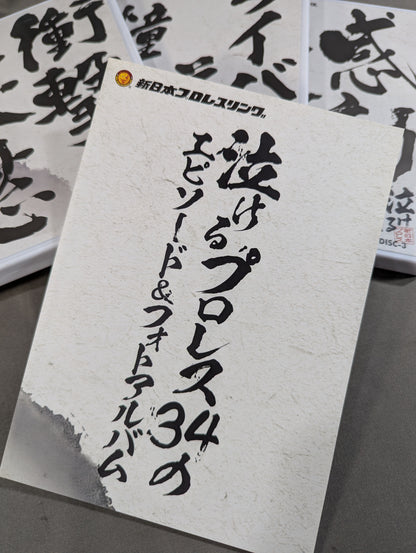 新日本プロレスリング
泣けるプロレス34の
エピソード&フォトアルバム
衝撃
感
泣ける
DISC-3